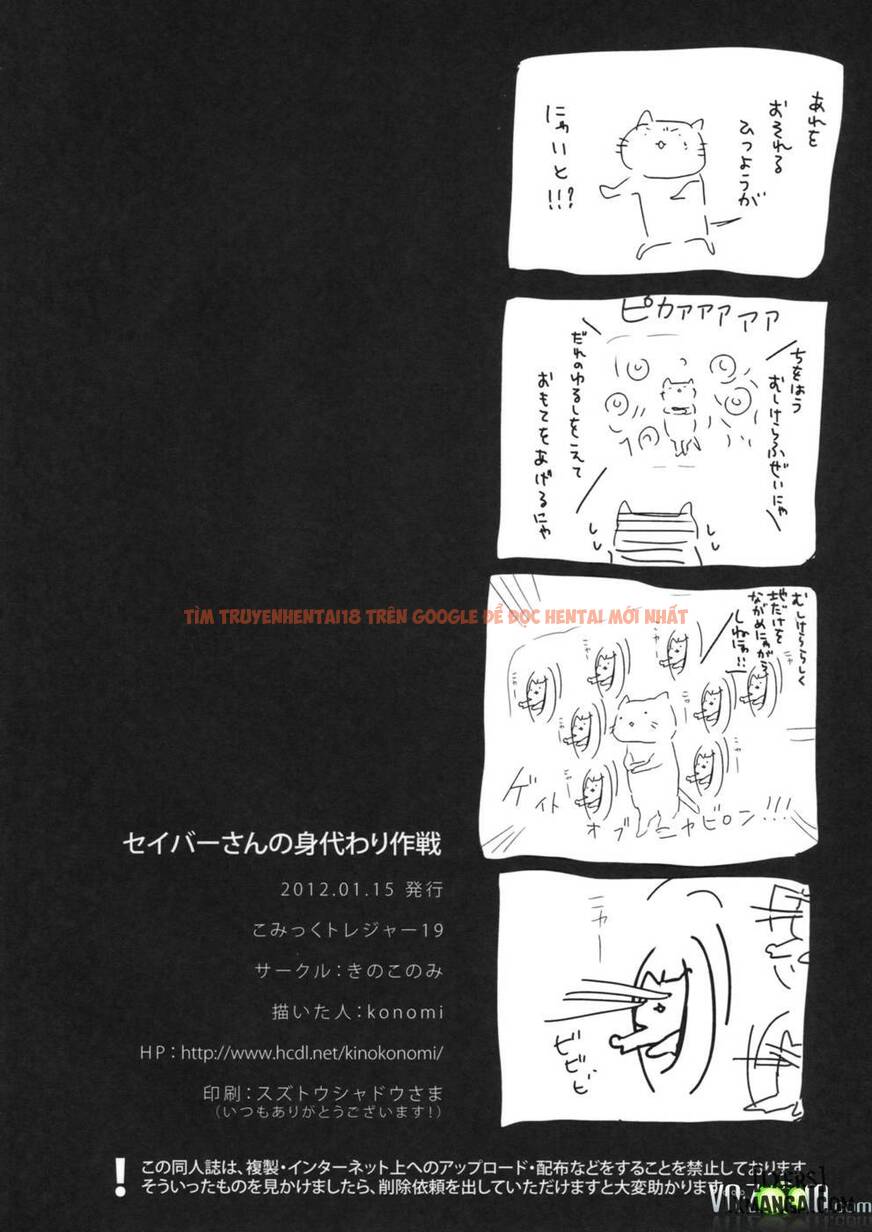 あれを
おそれる
ひつようが
にゃいと!!!?
ピカァァァァァ
ちをはう
むしけらふぜいにゃ
だれのゆるしをこえて
おもてをあげるにゃ
むしけららしく
地だけを
ながめにゃがら
しねにゃ!!
ニャー
ニャー
ニャー
ニャー
ニャー
ニャー
ゲイト
オブ
ニャビロン!!!
ニャー
ビビビ
TÌM TRUYENHENTAI18 TRÊN GOOGLE ĐỂ ĐỌC HENTAI MỚI NHẤT
セイバーさんの身代わり作戦
2012.01.15 発行
こみっくトレジャー19
サークル:きのこのみ
描いた人:konomi
HP:http://www.hcdl.net/kinokonomi/
印刷:スズトウシャドウさま
(いつもありがとうございます!)
! この同人誌は、複製・インターネット上へのアップロード・配布などをすることを禁止しております
そういったものを見かけましたら、削除依頼を出していただけますと大変助かります